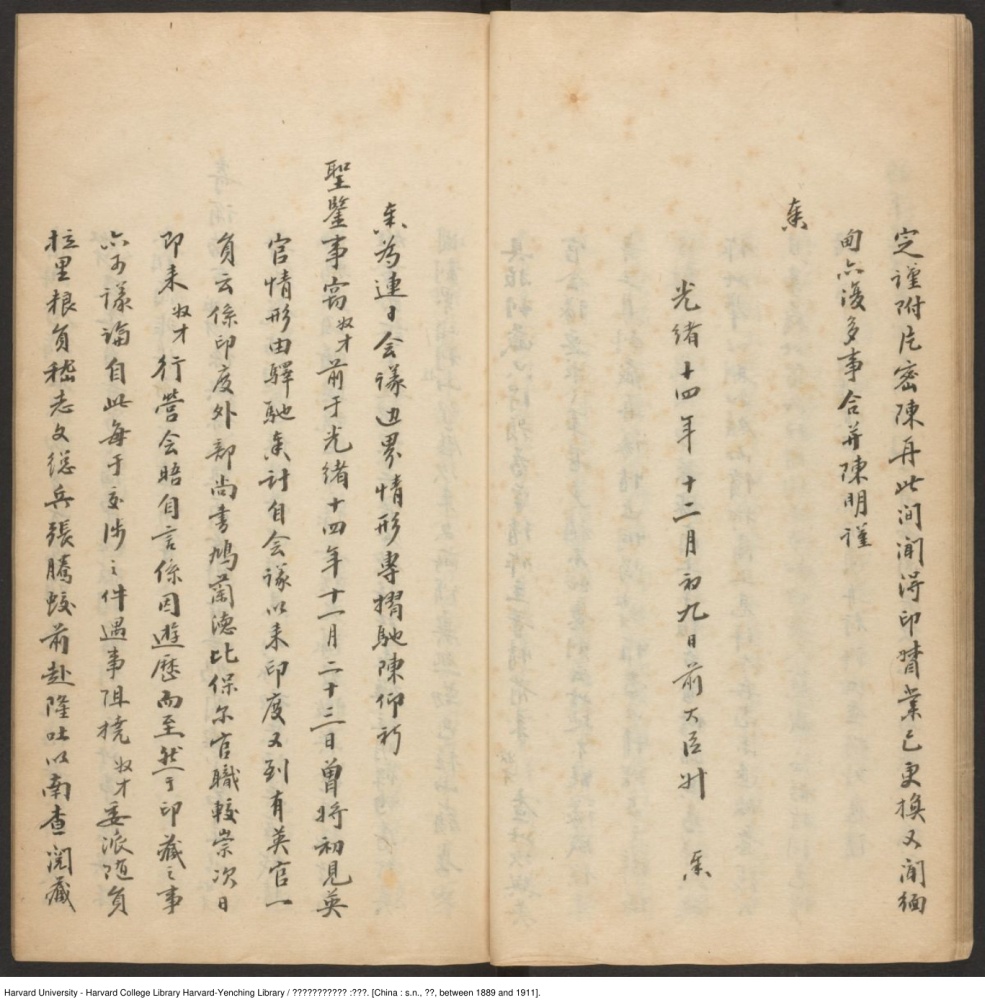 定謹附片密陳再此间闻得印督業已更換又闻缅
甸亦復多事合并陳明谨
奏
光绪十四年十二月初九日前大臣升 奏
奏為連日会議边界情形專摺馳陳仰祈
聖鑒事竊奴才前于光绪十四年十一月二十三日曾将初見英
官情形由驛馳奏計自会議以来印度又到有英官一
員云係印度外部尚書鳩蘭德比保尔官職較崇次日
即来奴才行营会晤自言係因遊歷而至然于印藏之事
亦可議論自此每于交涉之件遇事阻撓奴才委派随員
拉里粮員嵇志文総兵張騰蛟前赴隆吐以南查阅藏
Harvard University - Harvard College Library Harvard-Yenching Library / ??????????? :???. [China : s.n., ??, between 1889 and 1911].